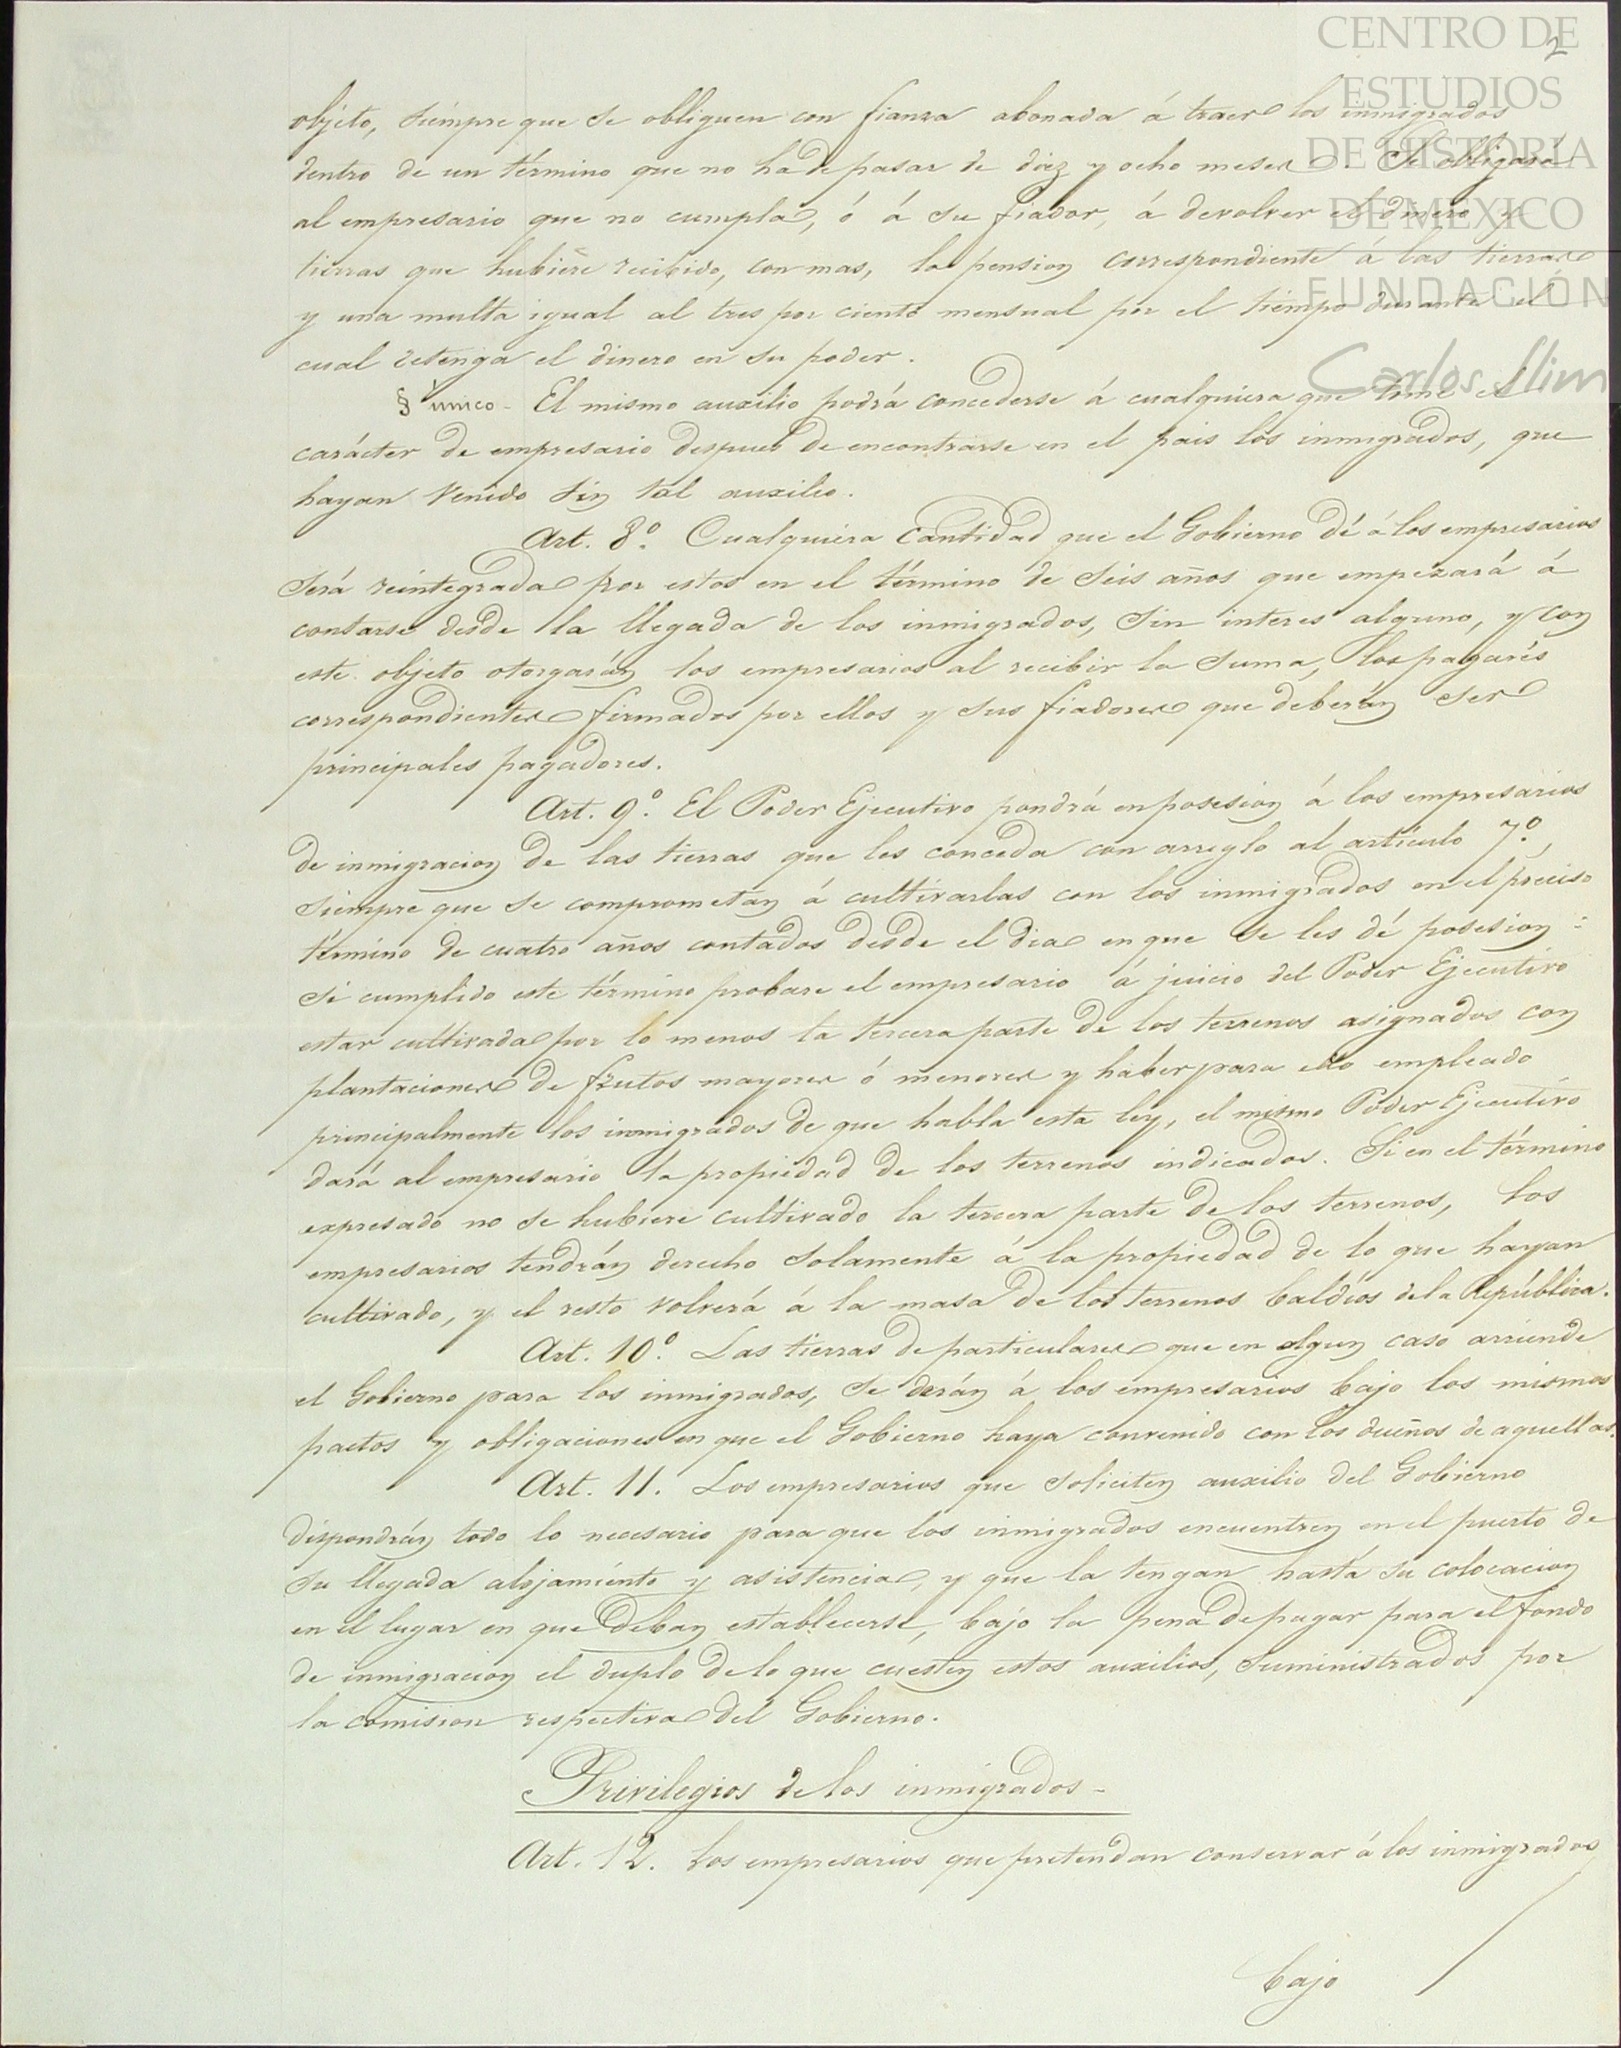 CENTRO DE
ESTUDIOS
DE HISTORIA
DE MÉXICO
FUNDACIÓN
Carlos Slim
2
objeto, siempre que se obliguen con fianza abonada á traer los inmigrados
dentro de un término que no ha de pasar de diez y ocho meses. Se obligará
al empresario que no cumpla, ó á su fiador, á devolver el dinero y
tierras que hubiere recibido, con mas, la pension correspondiente á las tierras
y una multa igual al tres por ciento mensual por el tiempo durante el
cual retenga el dinero en su poder.
§ único - El mismo auxilio podrá concederse á cualquiera que tome el
carácter de empresario despues de encontrarse en el pais los inmigrados, que
hayan venido sin tal auxilio.
Art. 8º. Cualquiera cantidad que el Gobierno dé á los empresarios
será reintegrada por estos en el término de seis años que empezará á
contarse desde la llegada de los inmigrados, sin interes alguno, y con
este objeto otorgarán los empresarios al recibir la suma, los pagarés
correspondientes firmados por ellos y sus fiadores que deberán ser
principales pagadores.
Art. 9º. El Poder Ejecutivo pondrá en posesion á los empresarios
de inmigracion de las tierras que les conceda con arreglo al artículo 7º,
siempre que se comprometan á cultivarlas con los inmigrados en el preciso
término de cuatro años contados desde el dia en que se les dé posesion:
si cumplido este término probare el empresario á juicio del Poder Ejecutivo
estar cultivada por lo menos la tercera parte de los terrenos asignados con
plantaciones de frutos mayores ó menores y haber para ello empleado
principalmente los inmigrados de que habla esta ley, el mismo Poder Ejecutivo
dará al empresario la propiedad de los terrenos indicados. Si en el término
expresado no se hubiere cultivado la tercera parte de los terrenos, los
empresarios tendrán derecho solamente á la propiedad de lo que hayan
cultivado, y el resto volverá á la masa de los terrenos baldíos de la República.
Art. 10º. Las tierras de particulares que en algun caso arriende
el Gobierno para los inmigrados, se darán á los empresarios bajo los mismos
pactos y obligaciones en que el Gobierno haya convenido con los dueños de aquellas.
Art. 11. Los empresarios que soliciten auxilio del Gobierno
dispondrán todo lo necesario para que los inmigrados encuentren en el puerto de
su llegada alojamiento y asistencia, y que la tengan hasta su colocacion
en el lugar en que deban establecerse, bajo la pena de pagar para el fondo
de inmigracion el duplo de lo que cuesten estos auxilios, suministrados por
la comision respectiva del Gobierno.
Privilegios de los inmigrados -
Art. 12. Los empresarios que pretendan conservar á los inmigrados
bajo